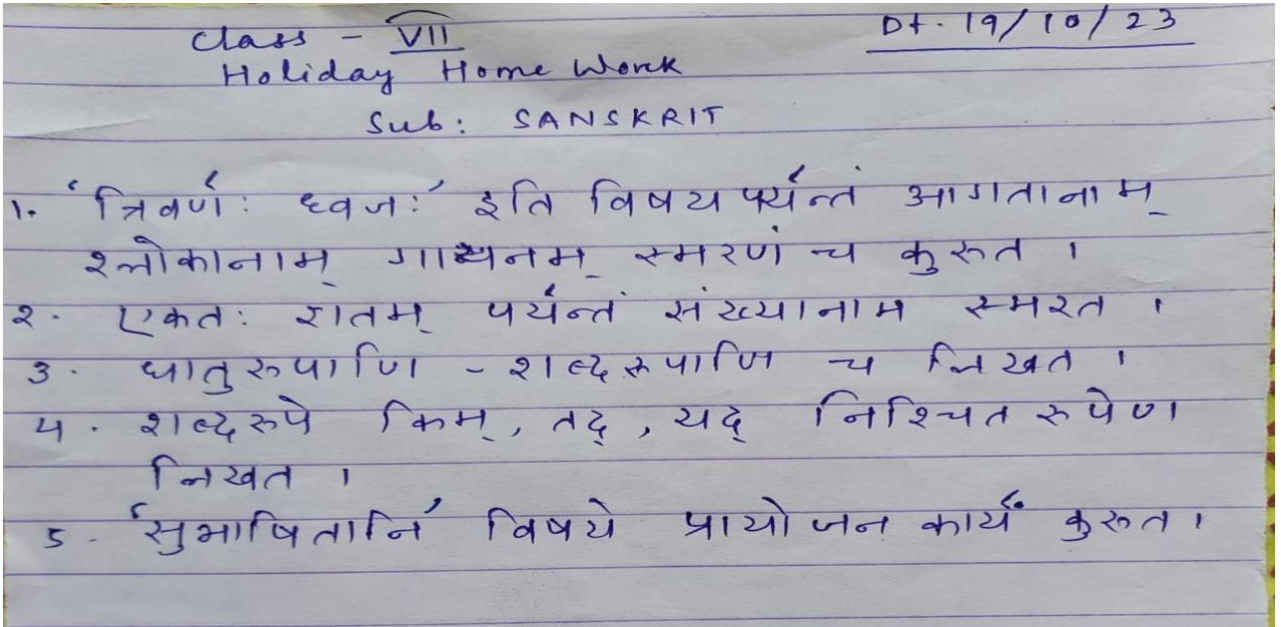 Class - VII
Dt. 19/10/23
Holiday Home Work
Sub: SANSKRIT
1. 'त्रिवर्णः ध्वजः' इति विषय पर्यन्तं आगतानाम्
श्लोकानाम् गायनम् स्मरणं च कुरूत ।
२. एकतः शतम् पर्यन्तं संख्यानाम स्मरत ।
3. धातुरुपाणि - शब्दरूपाणि च लिखत ।
4. शब्दरुपे किम्, तद्, यद् निश्चित रुपेण
लिखत ।
5. 'सुभाषितानि' विषये प्रायोजन कार्यं कुरूत ।